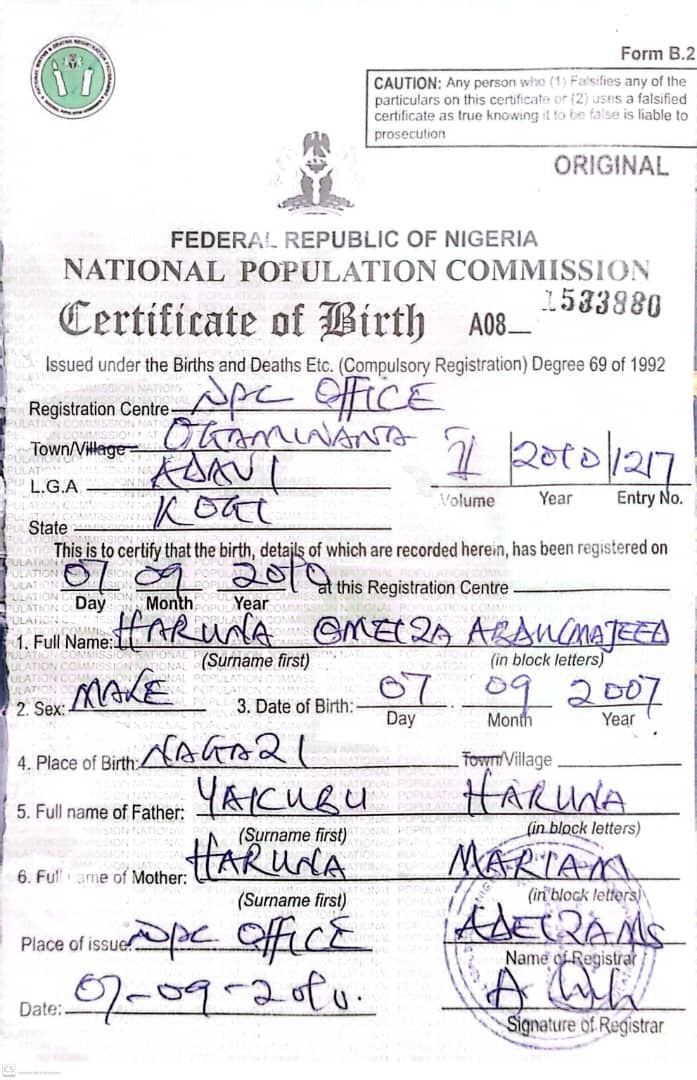 Form B.2
CAUTION: Any person who (1) Falsifies any of the
particulars on this certificate or (2) uses a falsified
certificate as true knowing it to be false is liable to
prosecution
ORIGINAL
FEDERAL REPUBLIC OF NIGERIA
NATIONAL POPULATION COMMISSION
Certificate of Birth A08 1533880
Issued under the Births and Deaths Etc. (Compulsory Registration) Degree 69 of 1992
Registration Centre NPC OFFICE
Town/Village OGAMINANA
L.G.A ADAVI
State KOGI
2010 1217
Volume Year Entry No.
This is to certify that the birth, details of which are recorded herein, has been registered on
07 09 2010 at this Registration Centre
Day Month Year
1. Full Name: HARUNA OMEIZA ABDULMAJEED
(Surname first) (in block letters)
2. Sex: MALE 3. Date of Birth: 07 09 2007
Day Month Year
4. Place of Birth: NAGAZI Town/Village
5. Full name of Father: YAKUBU HARUNA
(Surname first) (in block letters)
6. Full name of Mother: HARUNA MARIAM
(Surname first) (in block letters)
Place of issue: NPC OFFICE
Name of Registrar
Date: 07-09-2010.
Signature of Registrar
CS